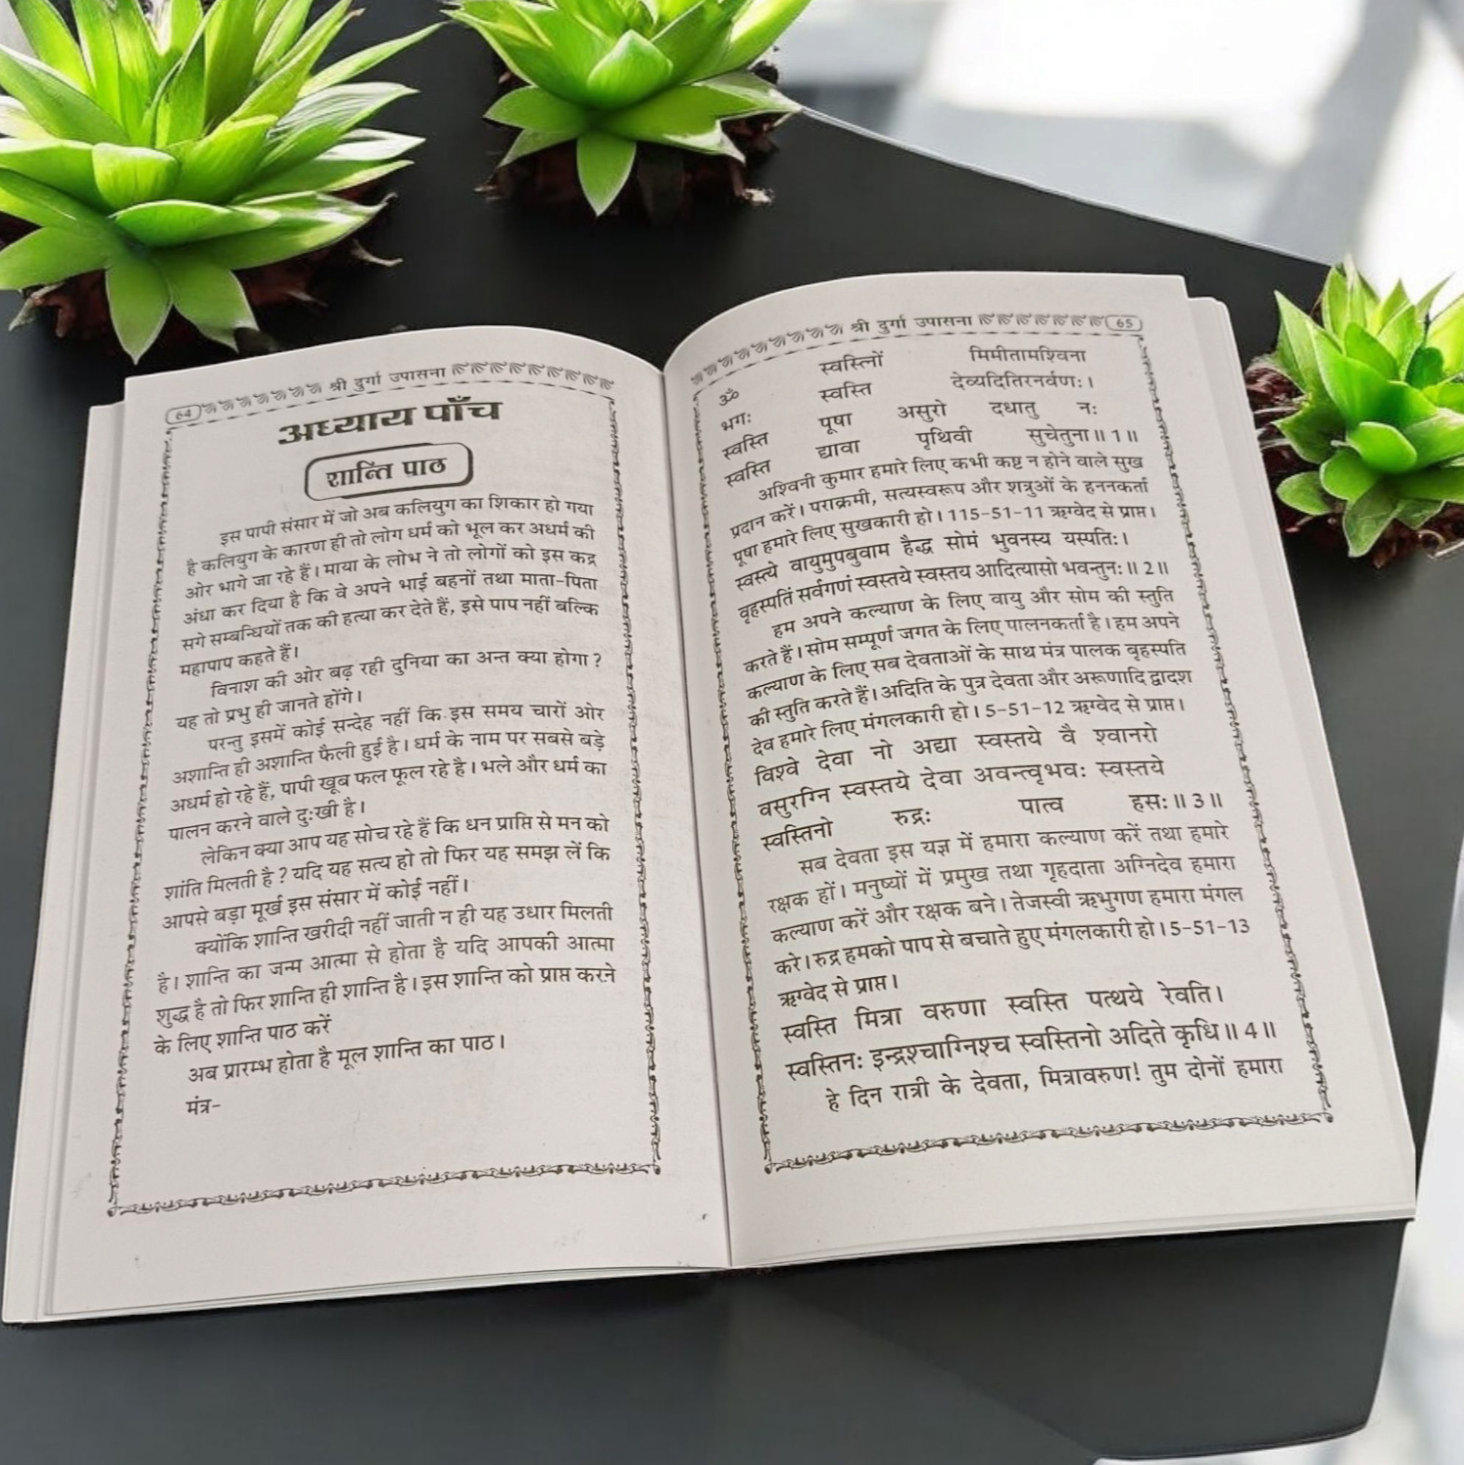 64 श्री दुर्गा उपासना
अध्याय पाँच
शान्ति पाठ
इस पापी संसार में जो अब कलियुग का शिकार हो गया
है कलियुग के कारण ही तो लोग धर्म को भूल कर अधर्म की
ओर भागे जा रहे हैं। माया के लोभ ने तो लोगों को इस कद्र
अंधा कर दिया है कि वे अपने भाई बहनों तथा माता-पिता
सगे सम्बन्धियों तक की हत्या कर देते हैं, इसे पाप नहीं बल्कि
महापाप कहते हैं।
विनाश की ओर बढ़ रही दुनिया का अन्त क्या होगा?
यह तो प्रभु ही जानते होंगे।
परन्तु इसमें कोई सन्देह नहीं कि इस समय चारों ओर
अशान्ति ही अशान्ति फैली हुई है। धर्म के नाम पर सबसे बड़े
अधर्म हो रहे हैं, पापी खूब फल फूल रहे है। भले और धर्म का
पालन करने वाले दुःखी है।
लेकिन क्या आप यह सोच रहे हैं कि धन प्राप्ति से मन को
शांति मिलती है? यदि यह सत्य हो तो फिर यह समझ लें कि
आपसे बड़ा मूर्ख इस संसार में कोई नहीं।
क्योंकि शान्ति खरीदी नहीं जाती न ही यह उधार मिलती
है। शान्ति का जन्म आत्मा से होता है यदि आपकी आत्मा
शुद्ध है तो फिर शान्ति ही शान्ति है। इस शान्ति को प्राप्त करने
के लिए शान्ति पाठ करें
अब प्रारम्भ होता है मूल शान्ति का पाठ।
मंत्र-
श्री दुर्गा उपासना 65
ॐ स्वस्तिनों मिमीतामश्विना
भगः स्वस्ति देव्यदितिरनर्वणः।
स्वस्ति पूषा असुरो दधातु नः
स्वस्ति द्यावा पृथिवी सुचेतुना॥ 1॥
अश्विनी कुमार हमारे लिए कभी कष्ट न होने वाले सुख
प्रदान करें। पराक्रमी, सत्यस्वरूप और शत्रुओं के हननकर्ता
पूषा हमारे लिए सुखकारी हो। 115-51-11 ऋग्वेद से प्राप्त।
स्वस्त्ये वायुमुपबुवाम हैद्ध सोमं भुवनस्य यस्पतिः।
वृहस्पतिं सर्वगणं स्वस्तये स्वस्तय आदित्यासो भवन्तुनः॥ 2॥
हम अपने कल्याण के लिए वायु और सोम की स्तुति
करते हैं। सोम सम्पूर्ण जगत के लिए पालनकर्ता है। हम अपने
कल्याण के लिए सब देवताओं के साथ मंत्र पालक बृहस्पति
की स्तुति करते हैं। अदिति के पुत्र देवता और अरूणादि द्वादश
देव हमारे लिए मंगलकारी हो। 5-51-12 ऋग्वेद से प्राप्त।
विश्वे देवा नो अद्या स्वस्तये वै श्वानरो
वसुरग्नि स्वस्तये देवा अवन्त्वृभवः स्वस्तये
स्वस्तिनो रुद्रः पात्व हसः॥ 3॥
सब देवता इस यज्ञ में हमारा कल्याण करें तथा हमारे
रक्षक हों। मनुष्यों में प्रमुख तथा गृहदाता अग्निदेव हमारा
कल्याण करें और रक्षक बने। तेजस्वी ऋभुगण हमारा मंगल
करे। रुद्र हमको पाप से बचाते हुए मंगलकारी हो। 5-51-13
ऋग्वेद से प्राप्त।
स्वस्ति मित्रा वरुणा स्वस्ति पत्थये रेवति।
स्वस्तिनः इन्द्रश्चाग्निश्च स्वस्तिनो अदिते कृधि॥ 4॥
हे दिन रात्री के देवता, मित्रावरुण! तुम दोनों हमारा